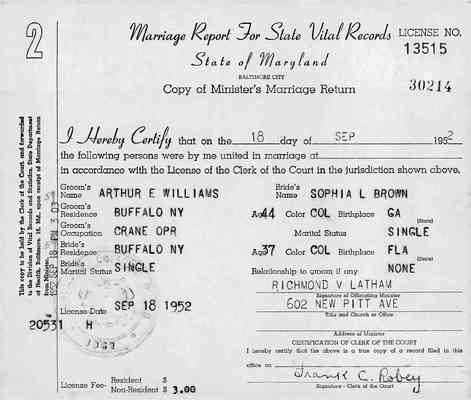 2
Marriage Report For State Vital Records LICENSE NO.
13515
State of Maryland
BALTIMORE CITY
Copy of Minister's Marriage Return 30214
I Hereby Certify that on the 18 day of SEP 1952
the following persons were by me united in marriage at
in accordance with the License of the Clerk of the Court in the jurisdiction shown above.
Groom's Name ARTHUR E WILLIAMS Bride's Name SOPHIA L BROWN
Groom's Residence BUFFALO NY Age 44 Color COL Birthplace GA
(State)
Groom's Occupation CRANE OPR Marital Status SINGLE
Bride's Residence BUFFALO NY Age 37 Color COL Birthplace FLA
(State)
Bride's Marital Status SINGLE Relationship to groom if any NONE
RICHMOND V LATHAM
Signature of Officiating Minister
License Date SEP 18 1952 602 NEW PITT AVE
Title and Church or Office
20531 H
Address of Minister
CERTIFICATION OF CLERK OF THE COURT
I hereby certify that the above is a true copy of a record filed in this
office on
Frank C. Robey
Signature - Clerk of the Court
License Fee- Resident $
Non-Resident $ 3.00
This copy to be held by the Clerk of the Court and forwarded
to the Division of Vital Records and Statistics, State Department
of Health, Baltimore, 18, Md. upon receipt of Marriage Return
from Minister.